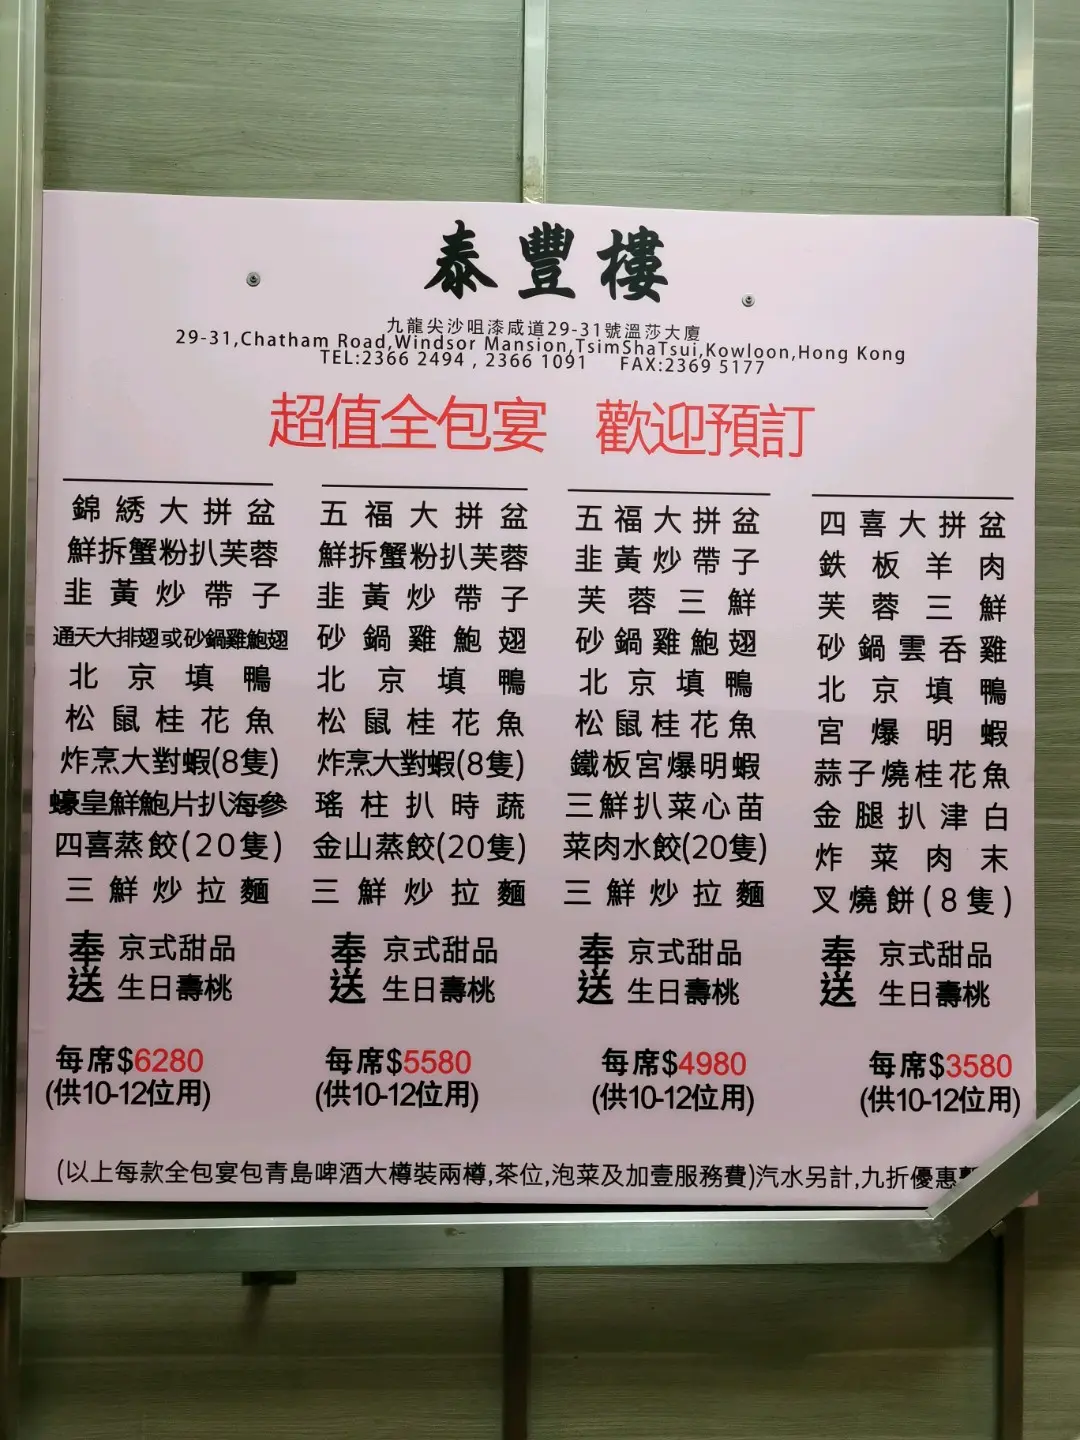 泰豐樓
九龍尖沙咀漆咸道29-31號溫莎大廈
29-31,Chatham Road,Windsor Mansion,TsimShaTsui,Kowloon,Hong Kong
TEL:2366 2494 , 2366 1091 FAX:2369 5177
超值全包宴 歡迎預訂
錦綉大拼盆
鮮拆蟹粉扒芙蓉
韭黃炒帶子
通天大排翅或砂鍋雞鮑翅
北京填鴨
松鼠桂花魚
炸烹大對蝦(8隻)
蠔皇鮮鮑片扒海參
四喜蒸餃(20隻)
三鮮炒拉麵
奉送
京式甜品
生日壽桃
每席$6280
(供10-12位用)
五福大拼盆
鮮拆蟹粉扒芙蓉
韭黃炒帶子
砂鍋雞鮑翅
北京填鴨
松鼠桂花魚
炸烹大對蝦(8隻)
瑤柱扒時蔬
金山蒸餃(20隻)
三鮮炒拉麵
奉送
京式甜品
生日壽桃
每席$5580
(供10-12位用)
五福大拼盆
韭黃炒帶子
芙蓉三鮮
砂鍋雞鮑翅
北京填鴨
松鼠桂花魚
鐵板宮爆明蝦
三鮮扒菜心苗
菜肉水餃(20隻)
三鮮炒拉麵
奉送
京式甜品
生日壽桃
每席$4980
(供10-12位用)
四喜大拼盆
鉄板羊肉
芙蓉三鮮
砂鍋雲吞雞
北京填鴨
宮爆明蝦
蒜子燒桂花魚
金腿扒津白
炸菜肉末
叉燒餅(8隻)
奉送
京式甜品
生日壽桃
每席$3580
(供10-12位用)
(以上每款全包宴包青島啤酒大樽裝兩樽,茶位,泡菜及加壹服務費)汽水另計,九折優惠